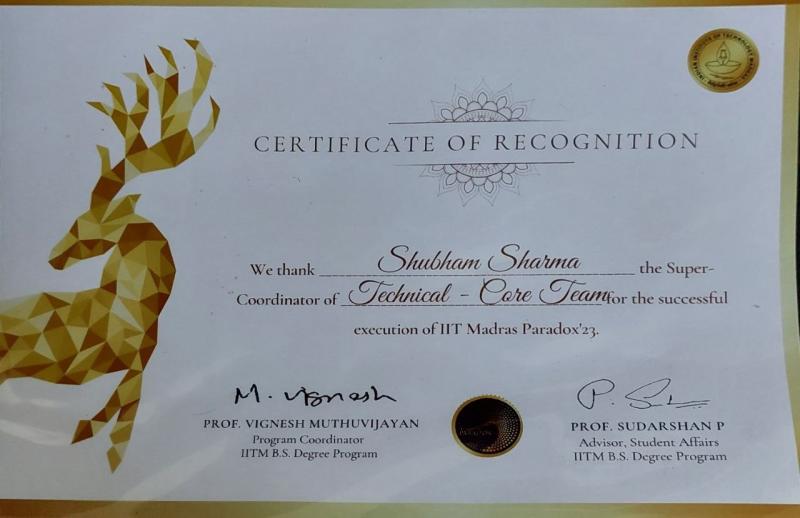 INDIAN INSTITUTE OF TECHNOLOGY MADRAS
CERTIFICATE OF RECOGNITION
We thank Shubham Sharma the Super-
Coordinator of Technical - Core Team for the successful
execution of IIT Madras Paradox'23.
M. Vignesh
PROF. VIGNESH MUTHUVIJAYAN
Program Coordinator
IITM B.S. Degree Program
PROF. SUDARSHAN P
Advisor, Student Affairs
IITM B.S. Degree Program